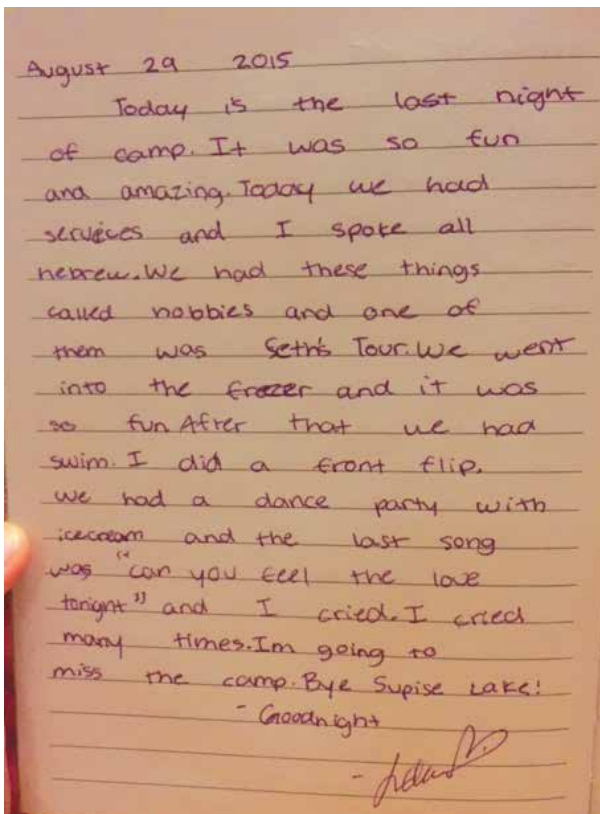 August 29 2015
Today is the last night
of camp. It was so fun
and amazing. Today we had
services and I spoke all
hebrew. We had these things
called hobbies and one of
them was Seth's Tour. We went
into the frezer and it was
so fun After that we had
swim. I did a front flip.
we had a dance party with
icecream and the last song
was "can you feel the love
tonight" and I cried. I cried
many times. Im going to
miss the camp. Bye Supise Lake!
- Goodnight